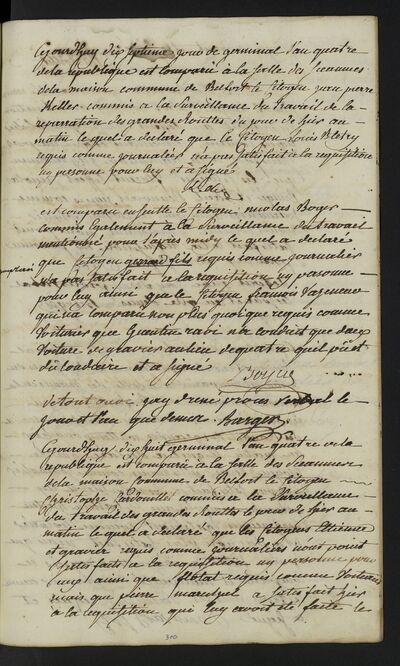 Cejourdhuy dix septieme jour de germinal l'an quatre
de la republique est comparu a la salle des seeannes
de la maison commune de Belfort le Citoyen jean pierre
Keller commis a la surveillance du travail de la
reparration des grandes Routtes du jour de hier au
matin le quel a déclaré que le Citoyen Louis
requis comme journalier n'a pas satisfait a la requisition
ny personne pour luy et a signé
est comparu ensuitte le Citoyen nicolas Boyer
commis également a la surveillance du travail
mentionné pour l'après midy le quel a declaré
que le Citoyen gerard fils requis comme journalier
n'a pas satisfait a la requisition ny personne
pour luy ainsi que le Citoyen francois
qui n'a comparu non plus quoique requis comme
voiturier que Quentin rabi n'a conduit que deux
voiture de gravier au lieu de quatre qu'il eût
dû conduire et a signé
Boyer
de tout quoi j'ay dressé procès verbal le
jour et l'an que dessus
Cejourdhuy dix huit germinal l'an quatre de la
republique est comparu a la salle des seeannes
de la maison commune de Belfort le Citoyen
Christophe commis a la surveillance
du travail des grandes Routtes le jour de hier au
matin le quel a déclaré que les Citoyens Etienne
et gravier requis comme journaliers n'ont point
satisfaits a la requisition ny personne pour
eux ainsi que requis comme voiturier
mais que pierre a satisfait hier
a la requisition qui luy avoit été faitte le
310